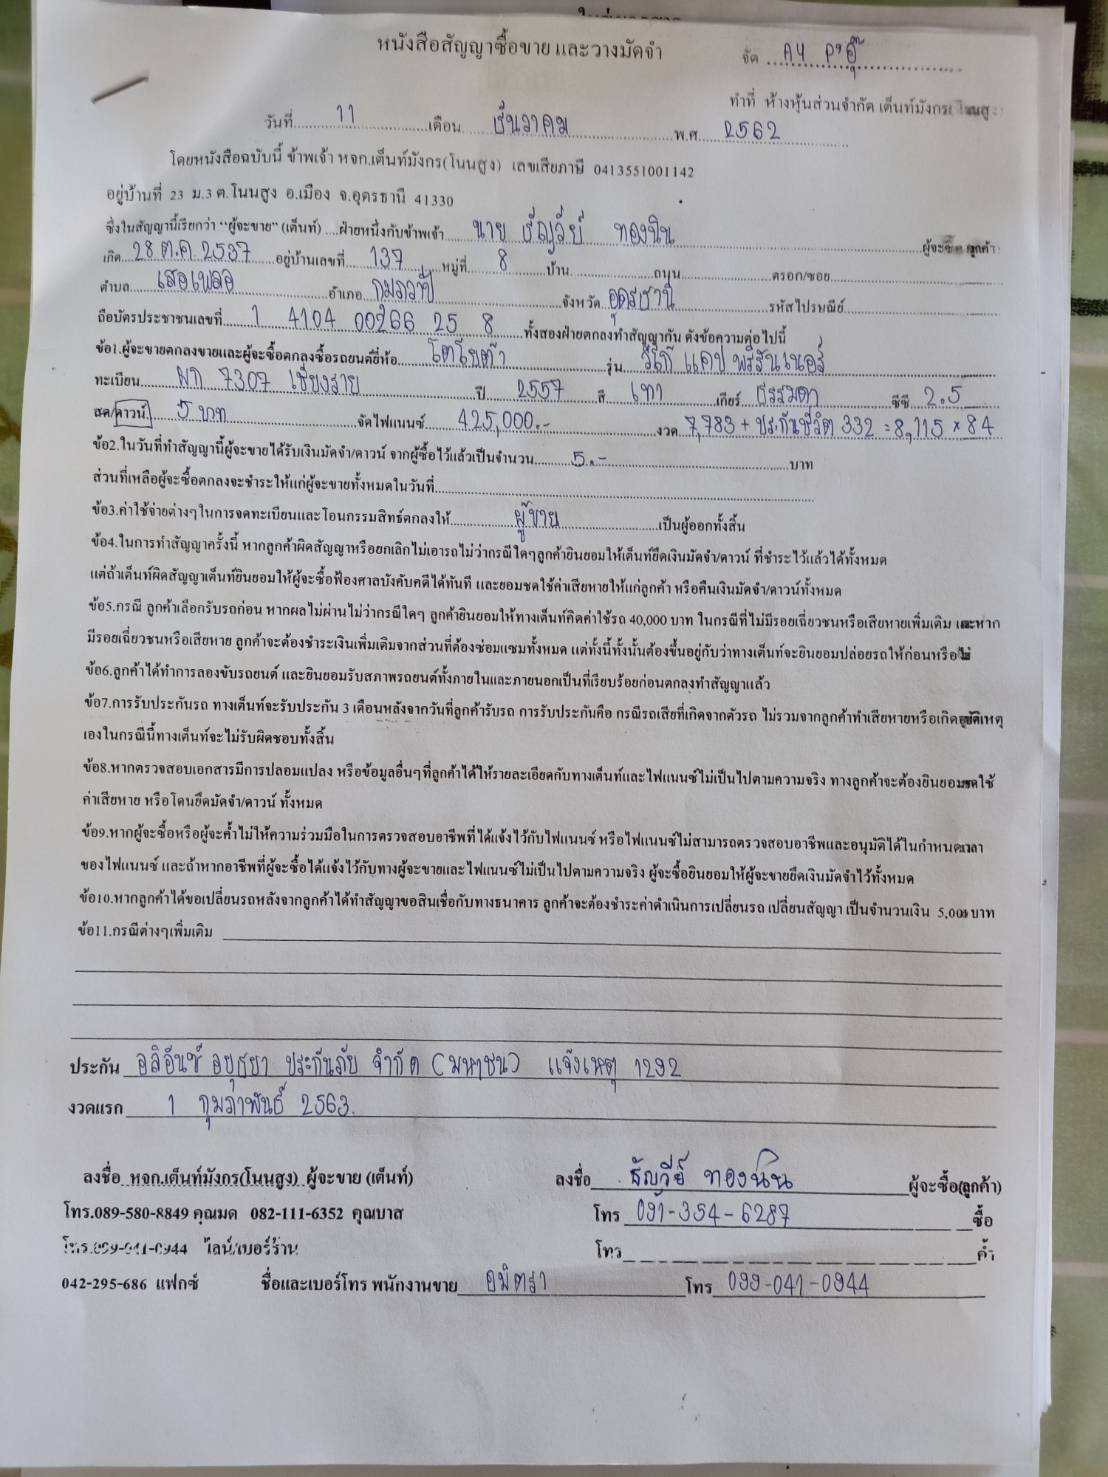 หนังสือสัญญาซื้อขาย และวางมัดจำ
จัด AY P'อู๊
ทำที่ ห้างหุ้นส่วนจำกัด เต็นท์มังกร
วันที่ 11 เดือน ธันวาคม พ.ศ. 2562
โดยหนังสือฉบับนี้ ข้าพเจ้า หจก.เต็นท์มังกร(โนนสูง) เลขเสียภาษี 0413551001142
อยู่บ้านที่ 23 ม.3 ต.โนนสูง อ.เมือง จ.อุดรธานี 41330
ซึ่งในสัญญานี้เรียกว่า "ผู้จะขาย" (เต็นท์) ....ฝ่ายหนึ่งกับข้าพเจ้า นาย ธัญวีย์ ทองนิน ผู้จะซื้อ ลูกค้า
เกิด 28 ต.ค 2537 อยู่บ้านเลขที่ 137 หมู่ที่ 8 บ้าน ถนน ตรอก/ซอย
ตำบล เสอเพลอ อำเภอ กุมภวาปี จังหวัด อุดรธานี รหัสไปรษณีย์
ถือบัตรประชาชนเลขที่ 1 4104 00266 25 8 ทั้งสองฝ่ายตกลงทำสัญญากัน ดังข้อความต่อไปนี้
ข้อ1.ผู้จะขายตกลงขายและผู้จะซื้อตกลงซื้อรถยนต์ยี่ห้อ โตโยต้า รุ่น วีโก้ แคป พรีรันเนอร์
ทะเบียน ผก 7307 เชียงราย ปี 2557 สี เทา เกียร์ ธรรมดา ซีซี 2.5
สด/ดาวน์ 5 บาท จัดไฟแนนซ์ 425,000.- งวด 7,783 + ประกันชีวิต 332 = 8,115 x 84
ข้อ2.ในวันที่ทำสัญญานี้ผู้จะขายได้รับเงินมัดจำ/ดาวน์ จากผู้ซื้อไว้แล้วเป็นจำนวน 5.- บาท
ส่วนที่เหลือผู้จะซื้อตกลงจะชำระให้แก่ผู้จะขายทั้งหมดในวันที่
ข้อ3.ค่าใช้จ่ายต่างๆในการจดทะเบียนและโอนกรรมสิทธ์ตกลงให้ ผู้ขาย เป็นผู้ออกทั้งสิ้น
ข้อ4.ในการทำสัญญาครั้งนี้ หากลูกค้าผิดสัญญาหรือยกเลิกไม่เอารถไม่ว่ากรณีใดๆลูกค้ายินยอมให้เต็นท์ยึดเงินมัดจำ/ดาวน์ ที่ชำระไว้แล้วได้ทั้งหมด
แต่ถ้าเต็นท์ผิดสัญญาเต็นท์ยินยอมให้ผู้จะซื้อฟ้องศาลบังคับคดีได้ทันที และยอมชดใช้ค่าเสียหายให้แก่ลูกค้า หรือคืนเงินมัดจำ/ดาวน์ทั้งหมด
ข้อ5.กรณี ลูกค้าเลือกรับรถก่อน หากผลไม่ผ่านไม่ว่ากรณีใดๆ ลูกค้ายินยอมให้ทางเต็นท์คิดค่าใช้รถ 40,000 บาท ในกรณีที่ไม่มีรอยเฉี่ยวชนหรือเสียหายเพิ่มเติม และหาก
มีรอยเฉี่ยวชนหรือเสียหาย ลูกค้าจะต้องชำระเงินเพิ่มเติมจากส่วนที่ต้องซ่อมแซมทั้งหมด แต่ทั้งนี้ทั้งนั้นต้องขึ้นอยู่กับว่าทางเต็นท์จะยินยอมปล่อยรถให้ก่อนหรือไม่
ข้อ6.ลูกค้าได้ทำการลองขับรถยนต์ และยินยอมรับสภาพรถยนต์ทั้งภายในและภายนอกเป็นที่เรียบร้อยก่อนตกลงทำสัญญาแล้ว
ข้อ7.การรับประกันรถ ทางเต็นท์จะรับประกัน 3 เดือนหลังจากวันที่ลูกค้ารับรถ การรับประกันคือ กรณีรถเสียที่เกิดจากตัวรถ ไม่รวมจากลูกค้าทำเสียหายหรือเกิดอุบัติเหตุ
เองในกรณีนี้ทางเต็นท์จะไม่รับผิดชอบทั้งสิ้น
ข้อ8.หากตรวจสอบเอกสารมีการปลอมแปลง หรือข้อมูลอื่นๆที่ลูกค้าได้ให้รายละเอียดกับทางเต็นท์และไฟแนนซ์ไม่เป็นไปตามความจริง ทางลูกค้าจะต้องยินยอมชดใช้
ค่าเสียหาย หรือโดนยึดมัดจำ/ดาวน์ ทั้งหมด
ข้อ9.หากผู้จะซื้อหรือผู้จะค้ำไม่ให้ความร่วมมือในการตรวจสอบอาชีพที่ได้แจ้งไว้กับไฟแนนซ์ หรือไฟแนนซ์ไม่สามารถตรวจสอบอาชีพและอนุมัติได้ในกำหนดเวลา
ของไฟแนนซ์ และถ้าหากอาชีพที่ผู้จะซื้อได้แจ้งไว้กับทางผู้จะขายและไฟแนนซ์ไม่เป็นไปตามความจริง ผู้จะซื้อยินยอมให้ผู้จะขายยึดเงินมัดจำไว้ทั้งหมด
ข้อ10.หากลูกค้าได้ขอเปลี่ยนรถหลังจากลูกค้าได้ทำสัญญาขอสินเชื่อกับทางธนาคาร ลูกค้าจะต้องชำระค่าดำเนินการเปลี่ยนรถ เปลี่ยนสัญญา เป็นจำนวนเงิน 5,000 บาท
ข้อ11.กรณีต่างๆเพิ่มเติม
ประกัน อลิอันซ์ อยุธยา ประกันภัย จำกัด (มหาชน) แจ้งเหตุ 1292
งวดแรก 1 กุมภาพันธ์ 2563.
ลงชื่อ หจก.เต็นท์มังกร(โนนสูง) ผู้จะขาย (เต็นท์) ลงชื่อ ธัญวีย์ ทองนิน ผู้จะซื้อ(ลูกค้า)
โทร.089-580-8849 คุณมด 082-111-6352 คุณบาส โทร 091-354-6287 ซื้อ
โทร.099-041-0944 ไลน์/เบอร์ร้าน โทร ค้ำ
042-295-686 แฟกซ์ ชื่อและเบอร์โทร พนักงานขาย อมิตรา โทร 099-041-0944